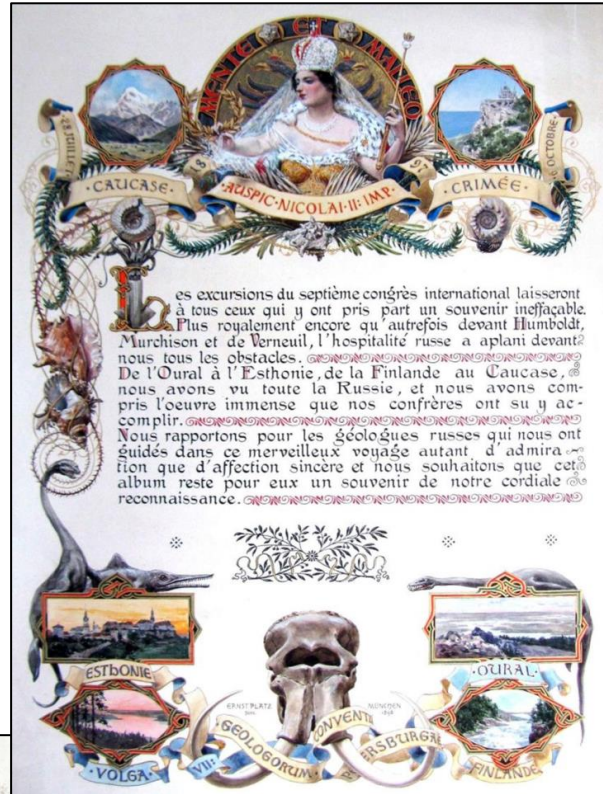 MENTE ET MALLEO
JUILLET
OCTOBRE
18 97
·CAUCASE·
·AUSPIC·NICOLAI·II·IMP·
·CRIMÉE·
Les excursions du septième congrès international laisseront
à tous ceux qui y ont pris part un souvenir ineffaçable.
Plus royalement encore qu'autrefois devant Humboldt,
Murchison et de Verneuil, l'hospitalité russe a aplani devant
nous tous les obstacles.
De l'Oural à l'Esthonie, de la Finlande au Caucase,
nous avons vu toute la Russie, et nous avons com-
pris l'oeuvre immense que nos confrères ont su y ac-
complir.
Nous rapportons pour les géologues russes qui nous ont
guidés dans ce merveilleux voyage autant d'admira-
tion que d'affection sincère et nous souhaitons que cet
album reste pour eux un souvenir de notre cordiale
reconnaissance.
ESTHONIE
·OURAL·
ERNST PLATZ
MÜNCHEN
1898
·VOLGA·
VII:
GEOLOGORUM
CONVENTU
FINLANDE